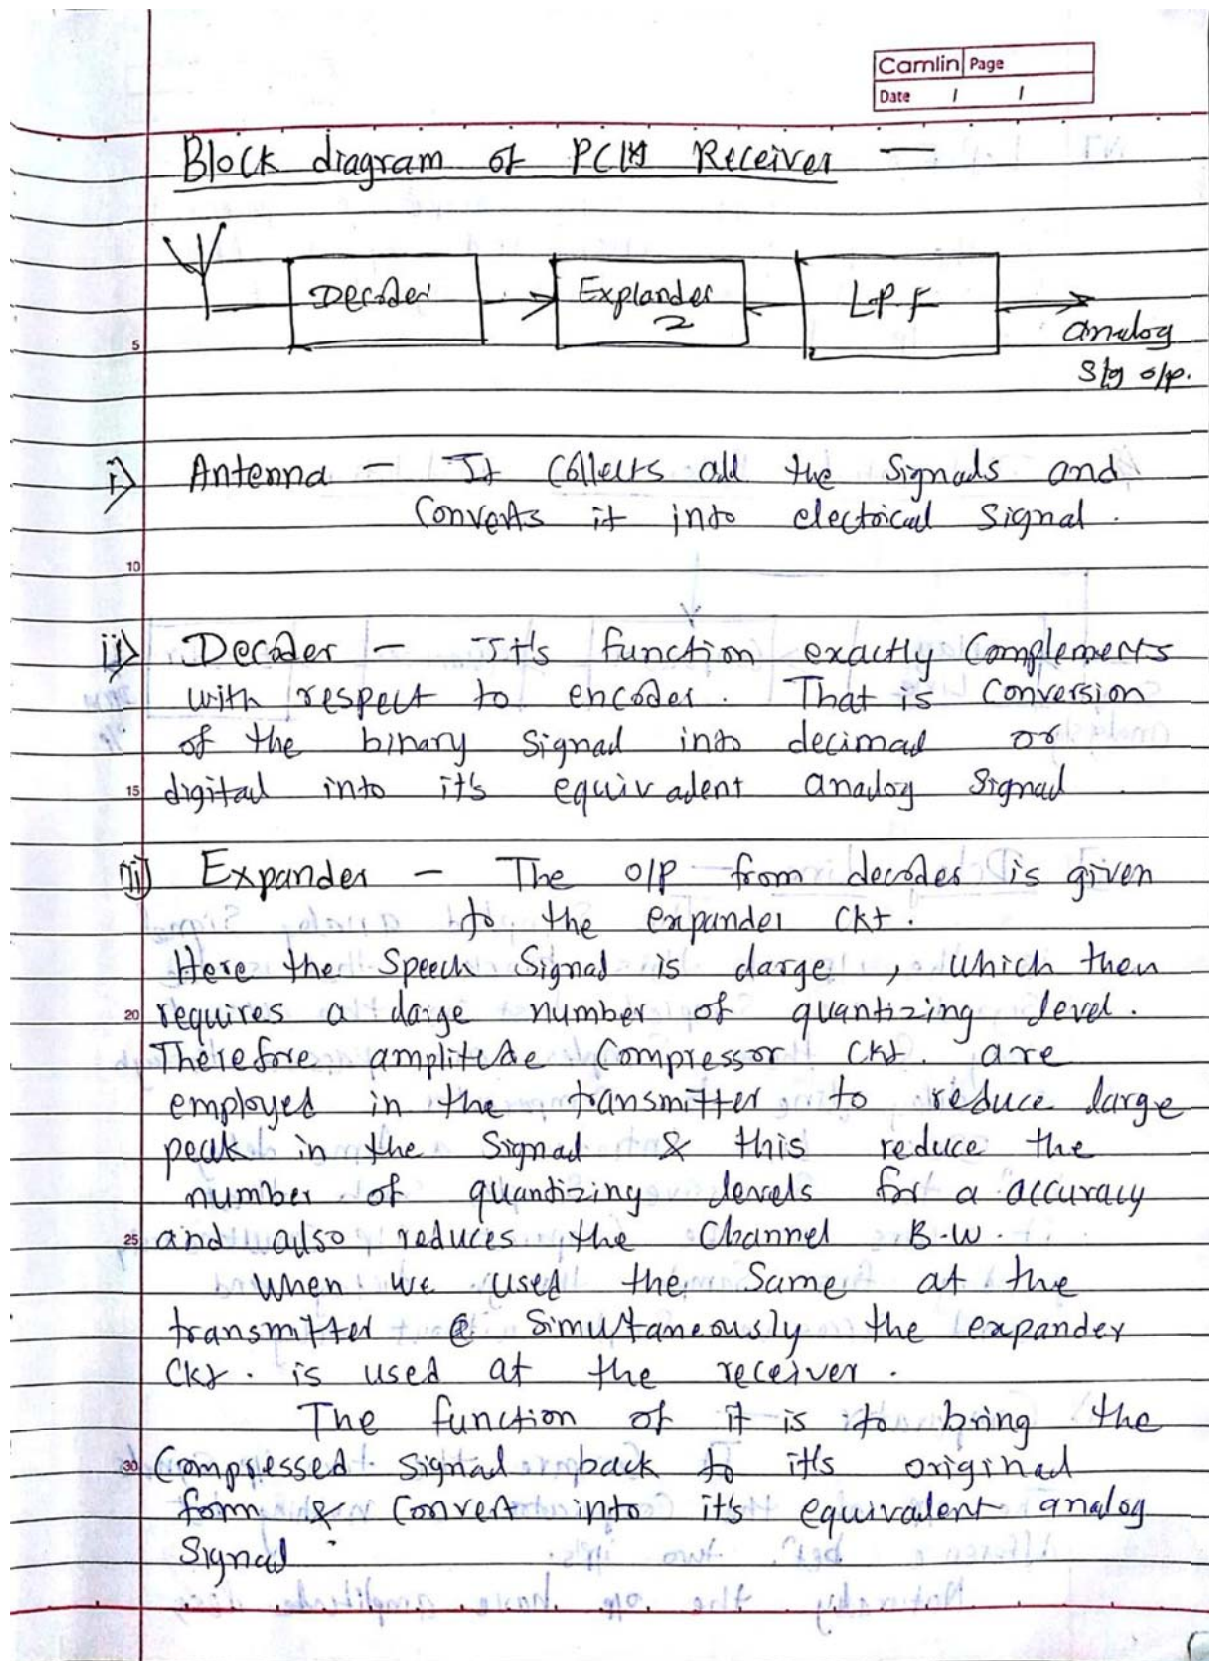 Camlin Page
Date / /
Block diagram of PCM Receiver —
Decoder
Explander
2
L.P.F
analog
sig o/p.
i) Antenna - It Collects all the Signals and
Converts it into electrical Signal.
10
5
ii) Decoder - It's function exactly Complements
with respect to encoder. That is Conversion
of the binary Signal into decimal or
15 digital into it's equivalent analog Signal
iii) Expander - The O/P from decoder is given
to the expander Ckt.
Here the Speech Signal is large, which then
20 requires a large number of quantizing level.
Therefore amplitude Compressor Ckt. are
employed in the transmitter to reduce large
peak in the Signal & this reduce the
number of quantizing levels for a accuracy
25 and also reduces the Channel B.W.
When we used the Same at the
transmitter Simultaneously the expander
Ckt. is used at the receiver.
The function of it is to bring the
30 Compressed Signal back to it's original
form & Convert into it's equivalent analog
Signal.